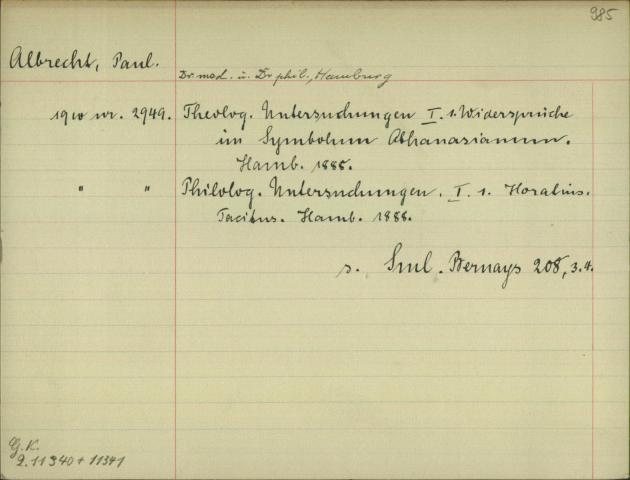 985
Albrecht, Paul.
Dr med. u. Dr phil., Hamburg
1910 nr. 2949. Theolog. Untersuchungen I. 1. Widersprüche
im Symbolum Athanasianum.
Hamb. 1888.
" " Philolog. Untersuchungen. I. 1. Horatius.
Tacitus. Hamb. 1888.
s. Sml. Bernays 208, 3.4.
G.K.
2.11340 + 11341